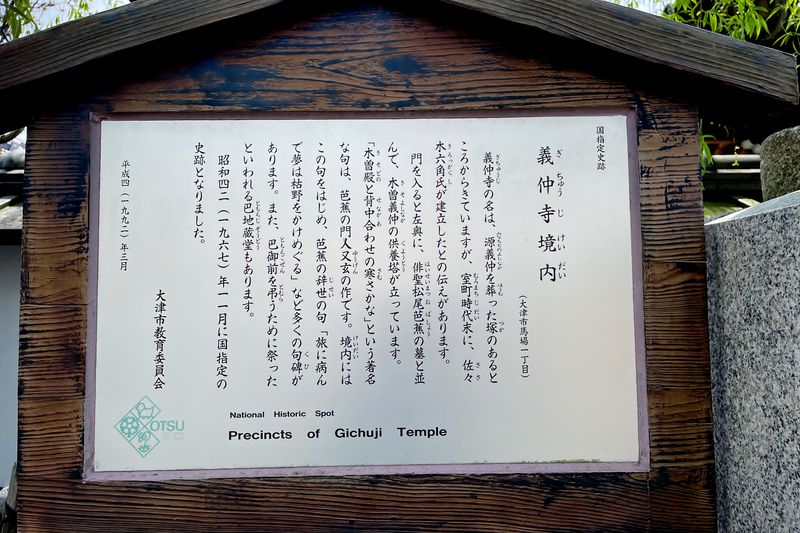 国指定史跡
義仲寺境内
ぎちゅうじけいだい
(大津市馬場一丁目)
義仲寺の名は、源義仲を葬った塚のあると
ころからきていますが、室町時代末に、佐々
木六角氏が建立したとの伝えがあります。
門を入ると左奥に、俳聖松尾芭蕉の墓と並
んで、木曽義仲の供養塔が立っています。
「木曽殿と背中合わせの寒さかな」という著名
な句は、芭蕉の門人又玄の作です。境内には
この句をはじめ、芭蕉の辞世の句「旅に病ん
で夢は枯野をかけめぐる」など多くの句碑が
あります。また、巴御前を弔うために祭った
といわれる巴地蔵堂もあります。
昭和四二(一九六七)年一一月に国指定の
史跡となりました。
大津市教育委員会
平成四(一九九二)年三月
OTSU
National Historic Spot
Precincts of Gichuji Temple